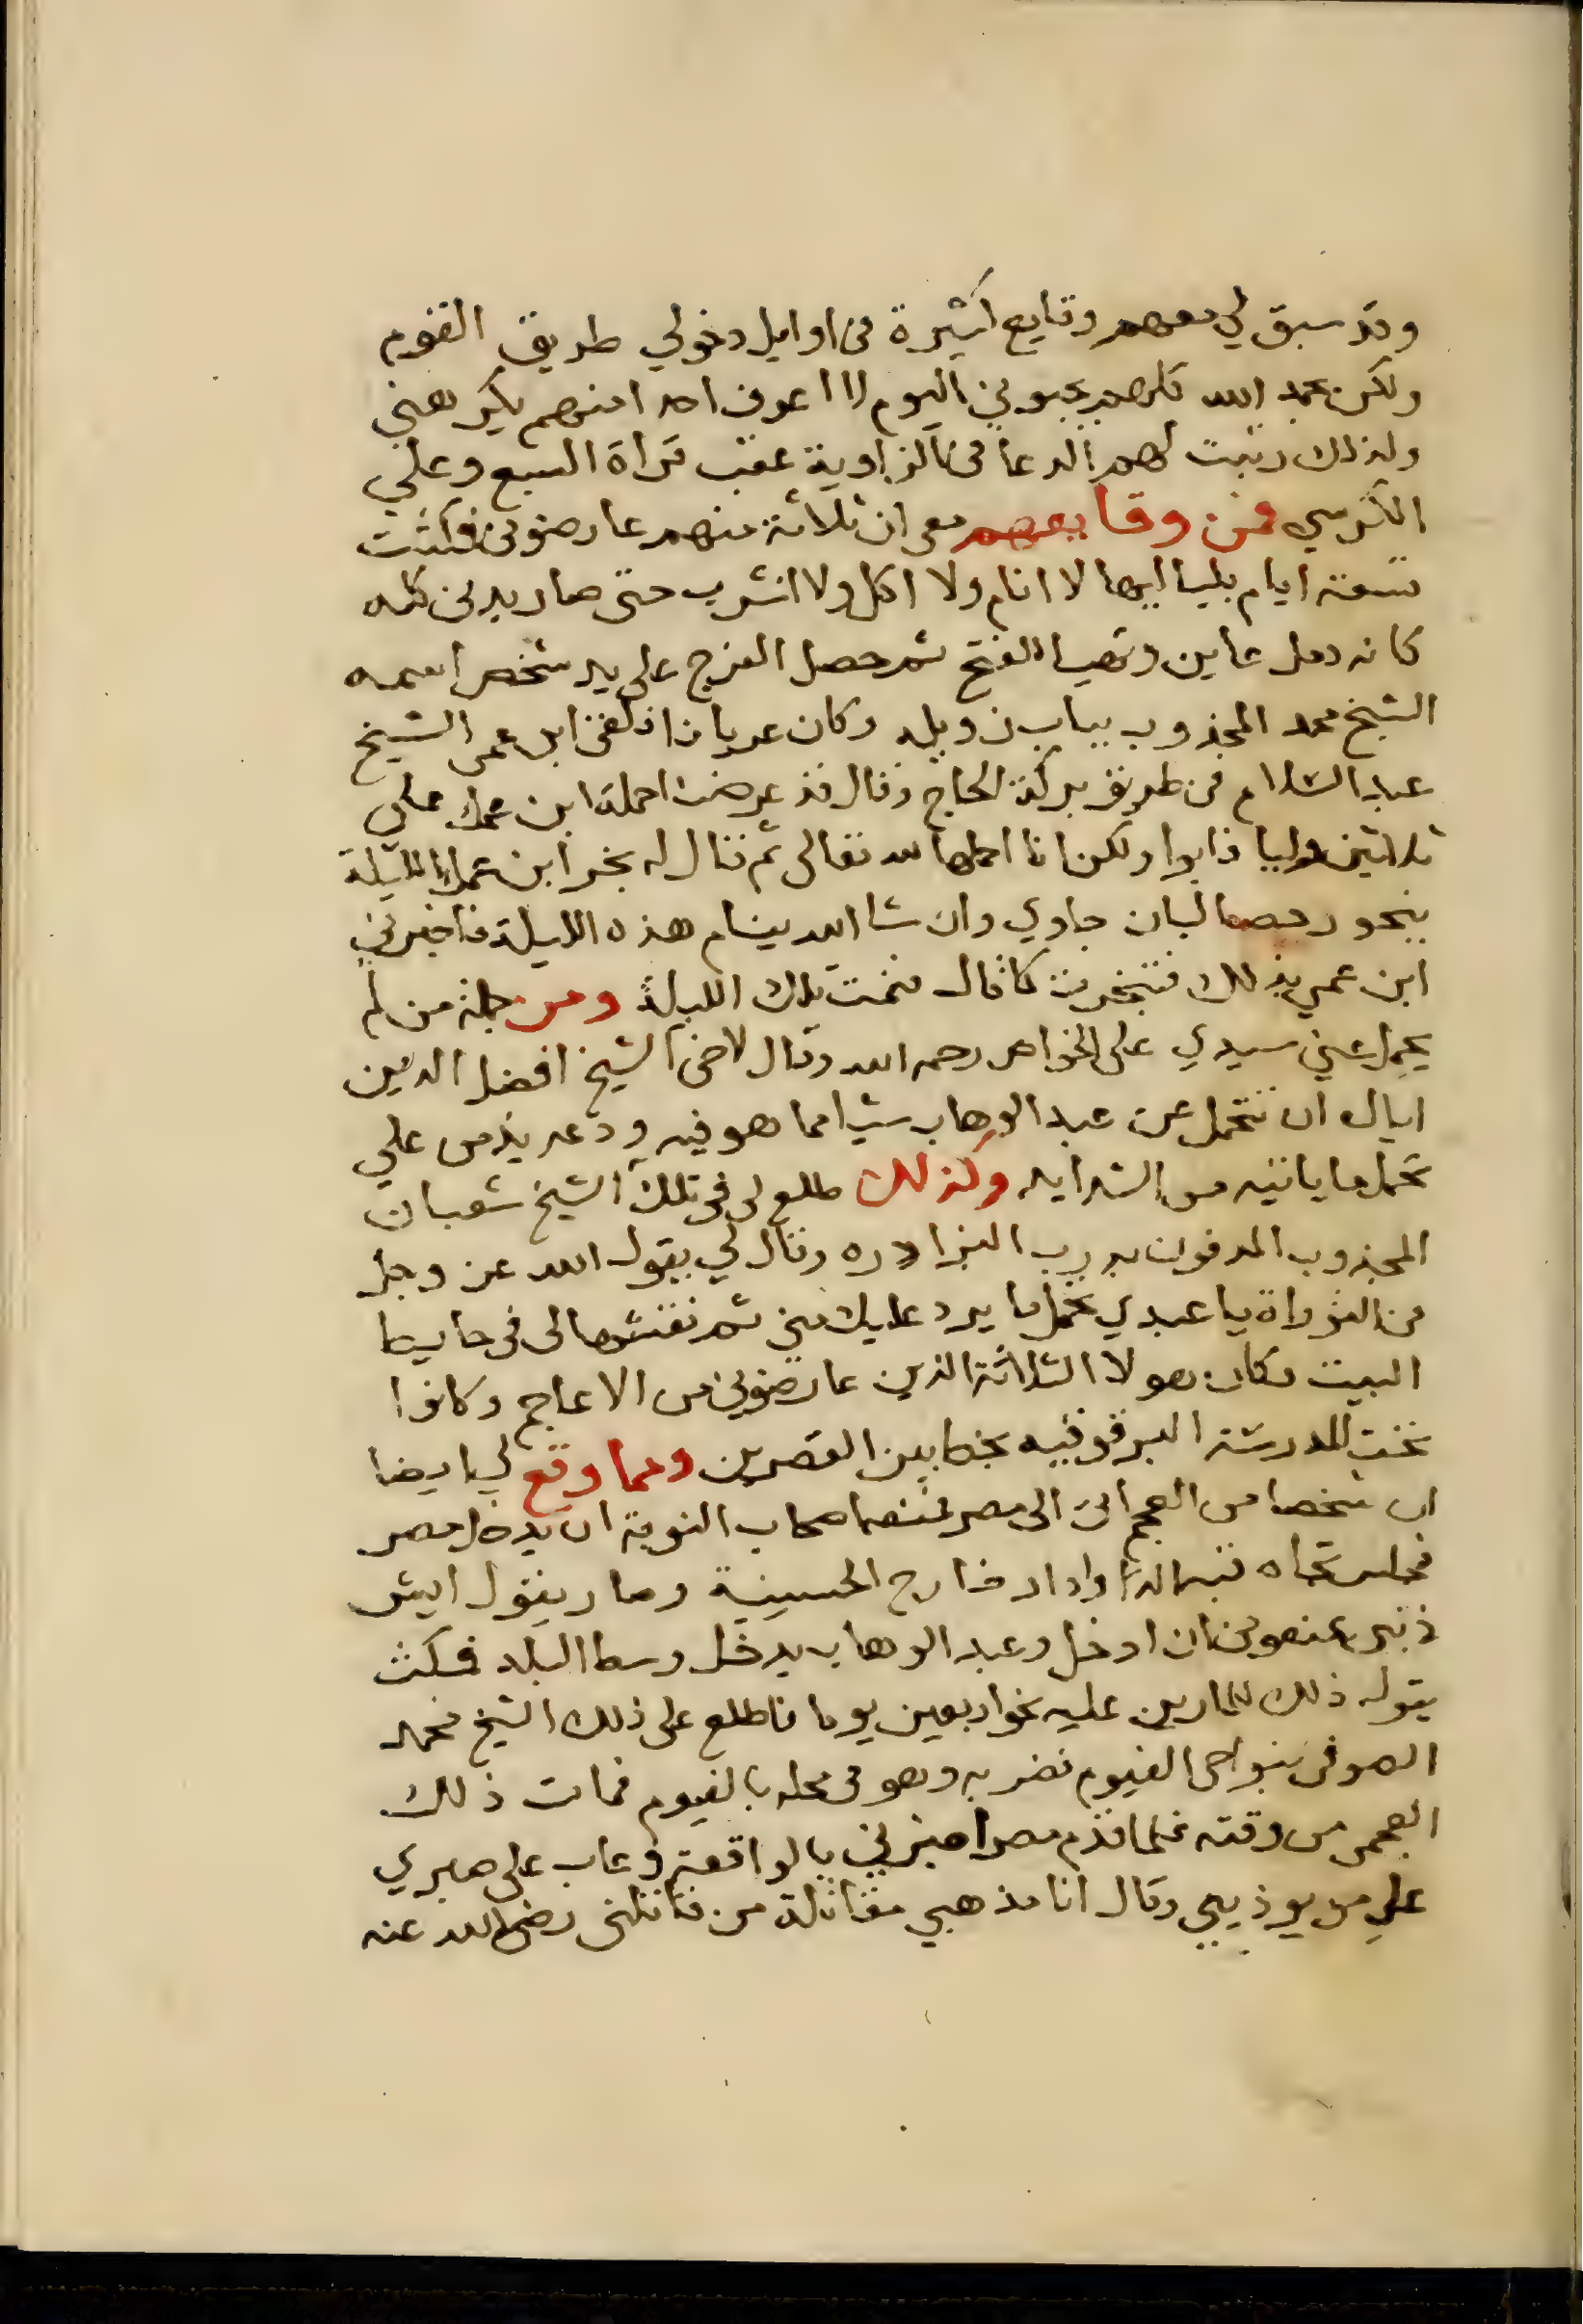 وقد سبق لي معهم وقايع كثيرة في اوايل دخولي طريق القوم
ولكن بحمد الله كلهم يحبوني اليوم لا اعرف احدا منهم يكرهني
ولذلك رتبت لهم الدعا في الزاوية عقب قراة السبع وعلي
الكرسي فمن وقايعهم معي ان ثلاثة منهم عارضوني فمكثت
تسعة ايام بلياليها لا انام ولا اكل ولا اشرب حتى صار بدني كله
كانه دمل عاين وتهيا للفتح ثم حصل الفرج على يد شخص اسمه
الشيخ محمد المجذوب بباب زويله وكان عريانا فلقي ابن عمي الشيخ
عبد السلام في طريق بركة الحاج وقال قد عرضت احملة ابن عمك على
ثلاثين وليا فابوا ولكن انا احملها لله تعالى ثم قال له بخر ابن عمك الليلة
بنحو حصا لبان جاوي وان شا الله ينام هذه الليلة فاخبرني
ابن عمي بذلك فتبخرت كما قال فنمت تلك الليلة ومن جملة من لم
يحمل عني سيدي علي الخواص رحمه الله وقال لاخي الشيخ افضل الدين
اياك ان تتحمل عن عبد الوهاب شيا مما هو فيه ودعه يدمن علي
تحمل ما ياتيه من الشدايد وكذلك طلع لي في تلك الشيخ شعبان
المجذوب المدفون بدرب البزادره وقال لي يقول الله عز وجل
في التوراة يا عبدي تحمل ما يرد عليك مني ثم نقشها لى في حايط
البيت وكان هولا الثلاثة الذين عارضوني من الاعاجم وكانوا
تحت المدرسة البرقوقيه بخط بين القصرين ومما وقع لي ايضا
ان شخصا من العجم اتى الى مصر فمنعه اصحاب النوبة ان يدخل مصر
فجلس تجاه خارج الحسينية وصار يقول ايش
ذنبي يمنعوني ان ادخل وعبد الوهاب يدخل وسط البلد فمكث
يقول ذلك للمارين عليه نحو اربعين يوما فاطلع على ذلك الشيخ محمد
الصوفي بنواحى الفيوم فضربه وهو في محله بالفيوم فمات ذلك
العجمي من وقته فلما قدم مصر اخبرني بالواقعة وعاب على صبري
علي من يوذيني وقال انا مذهبي مقاتلة من قاتلني رضي الله عنه